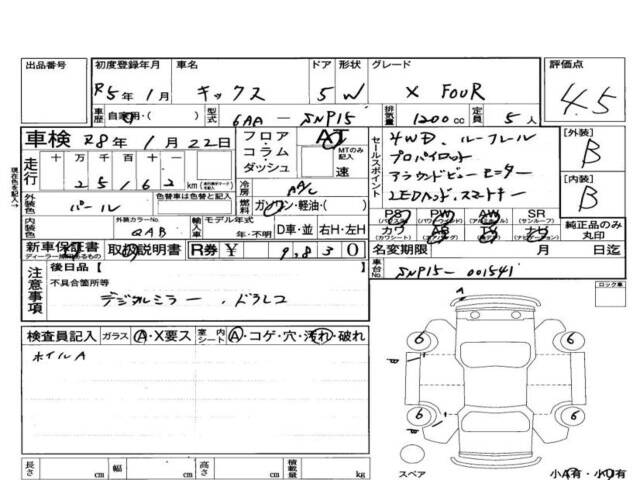 出品番号 初度登録年月 車名 ドア 形状 グレード 評価点
R5年1月 キックス 5 W X FOUR 4.5
車歴 自家用・( ) 型式 6AA-SNP15 排気量 1200cc 定員 5人
車検 R8年1月22日 フロア AT
コラム MTのみ記入
ダッシュ 速
現在色を記入→
走行 十万千百十 km
25162
セールスポイント
4WD、ルーフレール
プロパイロット
アラウンドビューモニター
LEDヘッド、スマートキー
[外装] B
[内装] B
外装色 パール 色替車は色替と記入 冷房 A/C
燃料 ガソリン・軽油・( )
内装色 外装カラーNo. QAB 輸入車 モデル年式 年・不明 D車・並 右H・左H
PS AW SR
(サンルーフ)
カワ
純正品のみ丸印
新車保証書 取扱説明書 R券 ¥ 9,830 名変期限 月 日迄
ディーラー捺印のあるもの
車台No. SNP15-001541
注意事項 後日品[ ]
不具合箇所等
デジタルミラー、ドラレコ
ロック車
検査員記入 ガラス A・X要ス 室内シート A・コゲ・穴・汚れ・破れ
ホイルA
A
6 6
6 6
長さ cm 幅 cm 高さ cm 積載量 kg
スペア 小A有・小U有